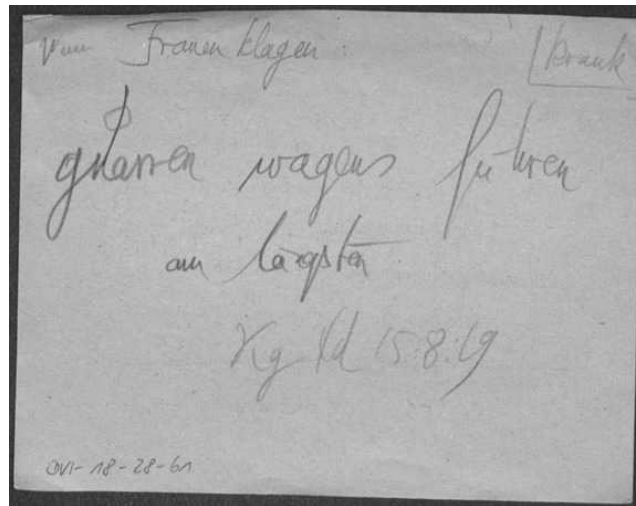 wenn Frauen klagen: krank
gnarren wagens führen
am längsten
Kg Id 15.8.19
OVI-18-28-61